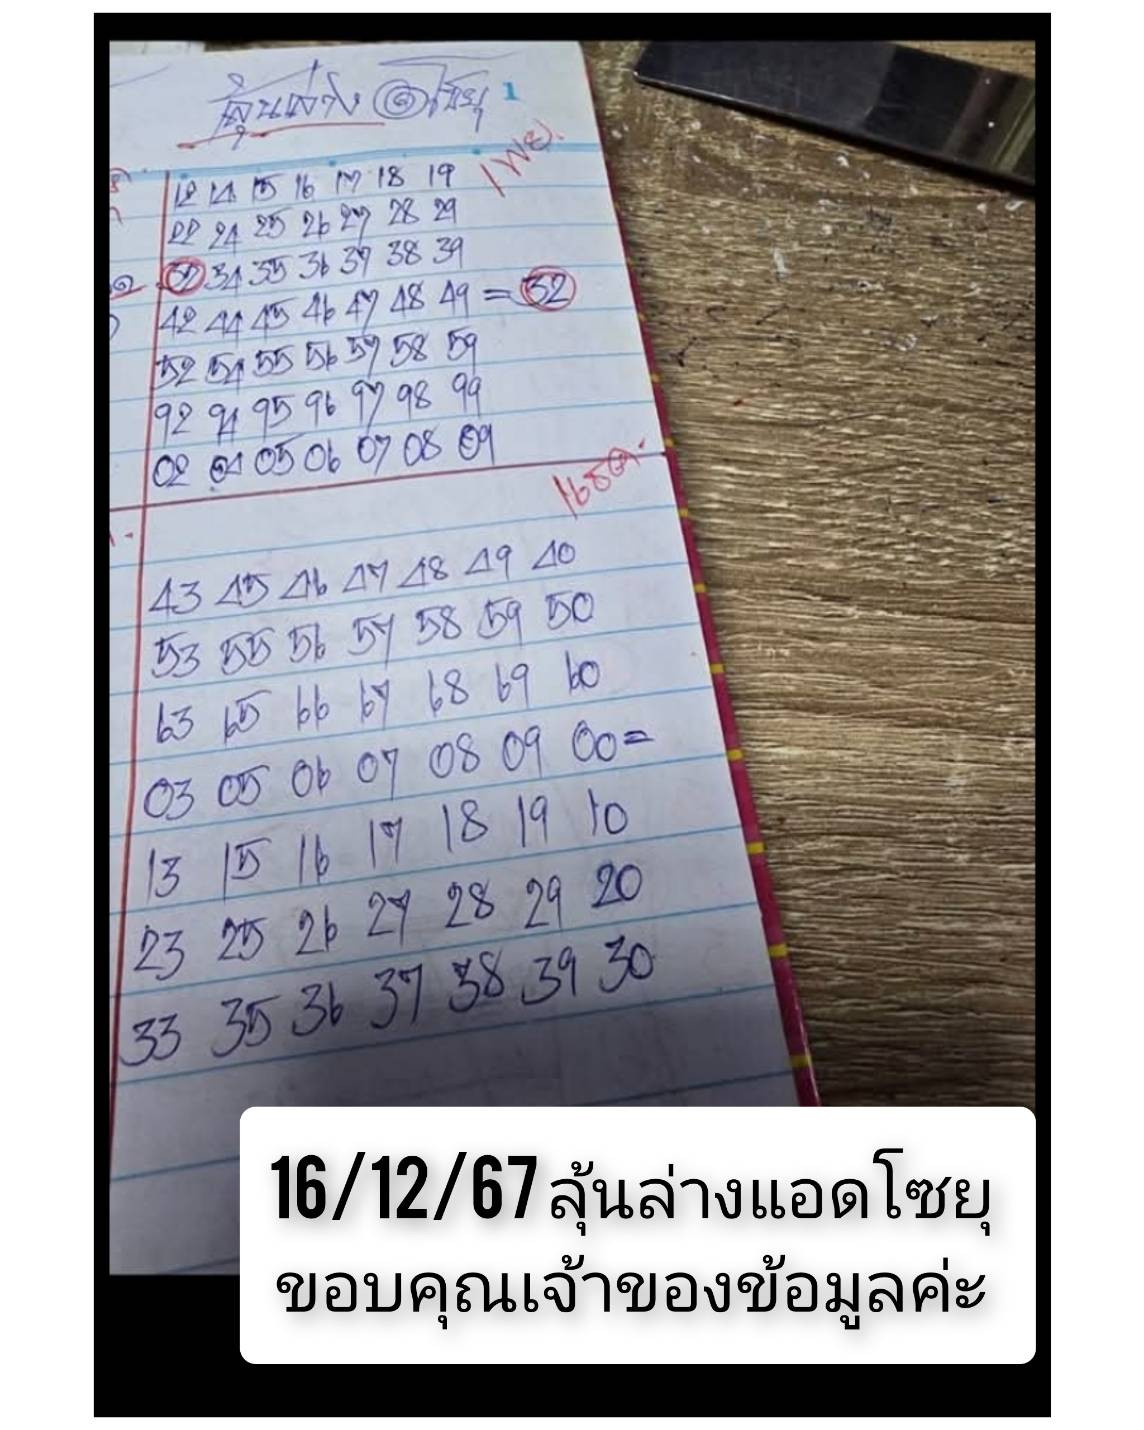 ลุ้นล่าง @โซยุ 1
12 14 15 16 17 18 19
22 24 25 26 27 28 29
32 34 35 36 37 38 39
42 44 45 46 47 48 49 = 32
52 54 55 56 57 58 59
92 94 95 96 97 98 99
02 04 05 06 07 08 09
43 45 46 47 48 49 40
53 55 56 57 58 59 50
63 65 66 67 68 69 60
03 05 06 07 08 09 00=
13 15 16 17 18 19 10
23 25 26 27 28 29 20
33 35 36 37 38 39 30
16/12/67 ลุ้นล่างแอดโซยุ
ขอบคุณเจ้าของข้อมูลค่ะ